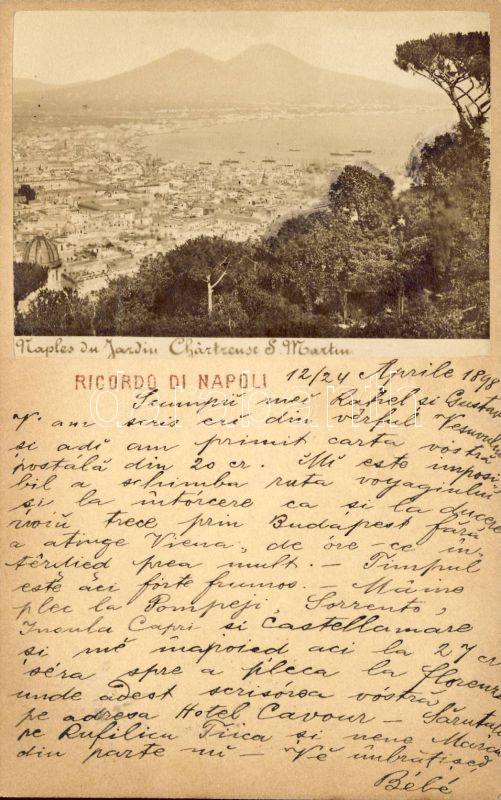 Naples du Jardin Chârtreuse S. Martin
RICORDO DI NAPOLI
12/24 Aprile 1898
Scumpii meĭ Rahel si Gustav
V'am scris eri din vêrful Vesuvului
si adĭ am primit carta vóstră
postală din 20 cr. Mĭ este imposi-
bil a schimba ruta voyagiuluĭ
si la întórcere ca si la ducere
voiŭ trece prin Budapest fără
a atinge Viena, de óre-ce în-
têrdied prea mult. — Timpul
este aci fórte frumos. Mâine
plec la Pompeji, Sorrento,
Insula Capri si Castellamare
si mĕ înapoied aci la 27 cr.
séra spre a pleca la Florenz
unde adest scrisorea vóstră
pe adresa Hotel Cavour — Sărutați
pe Rufilicu Tiica si nene Marcu
din parte mĭ — Vĕ îmbrățised
Bébé